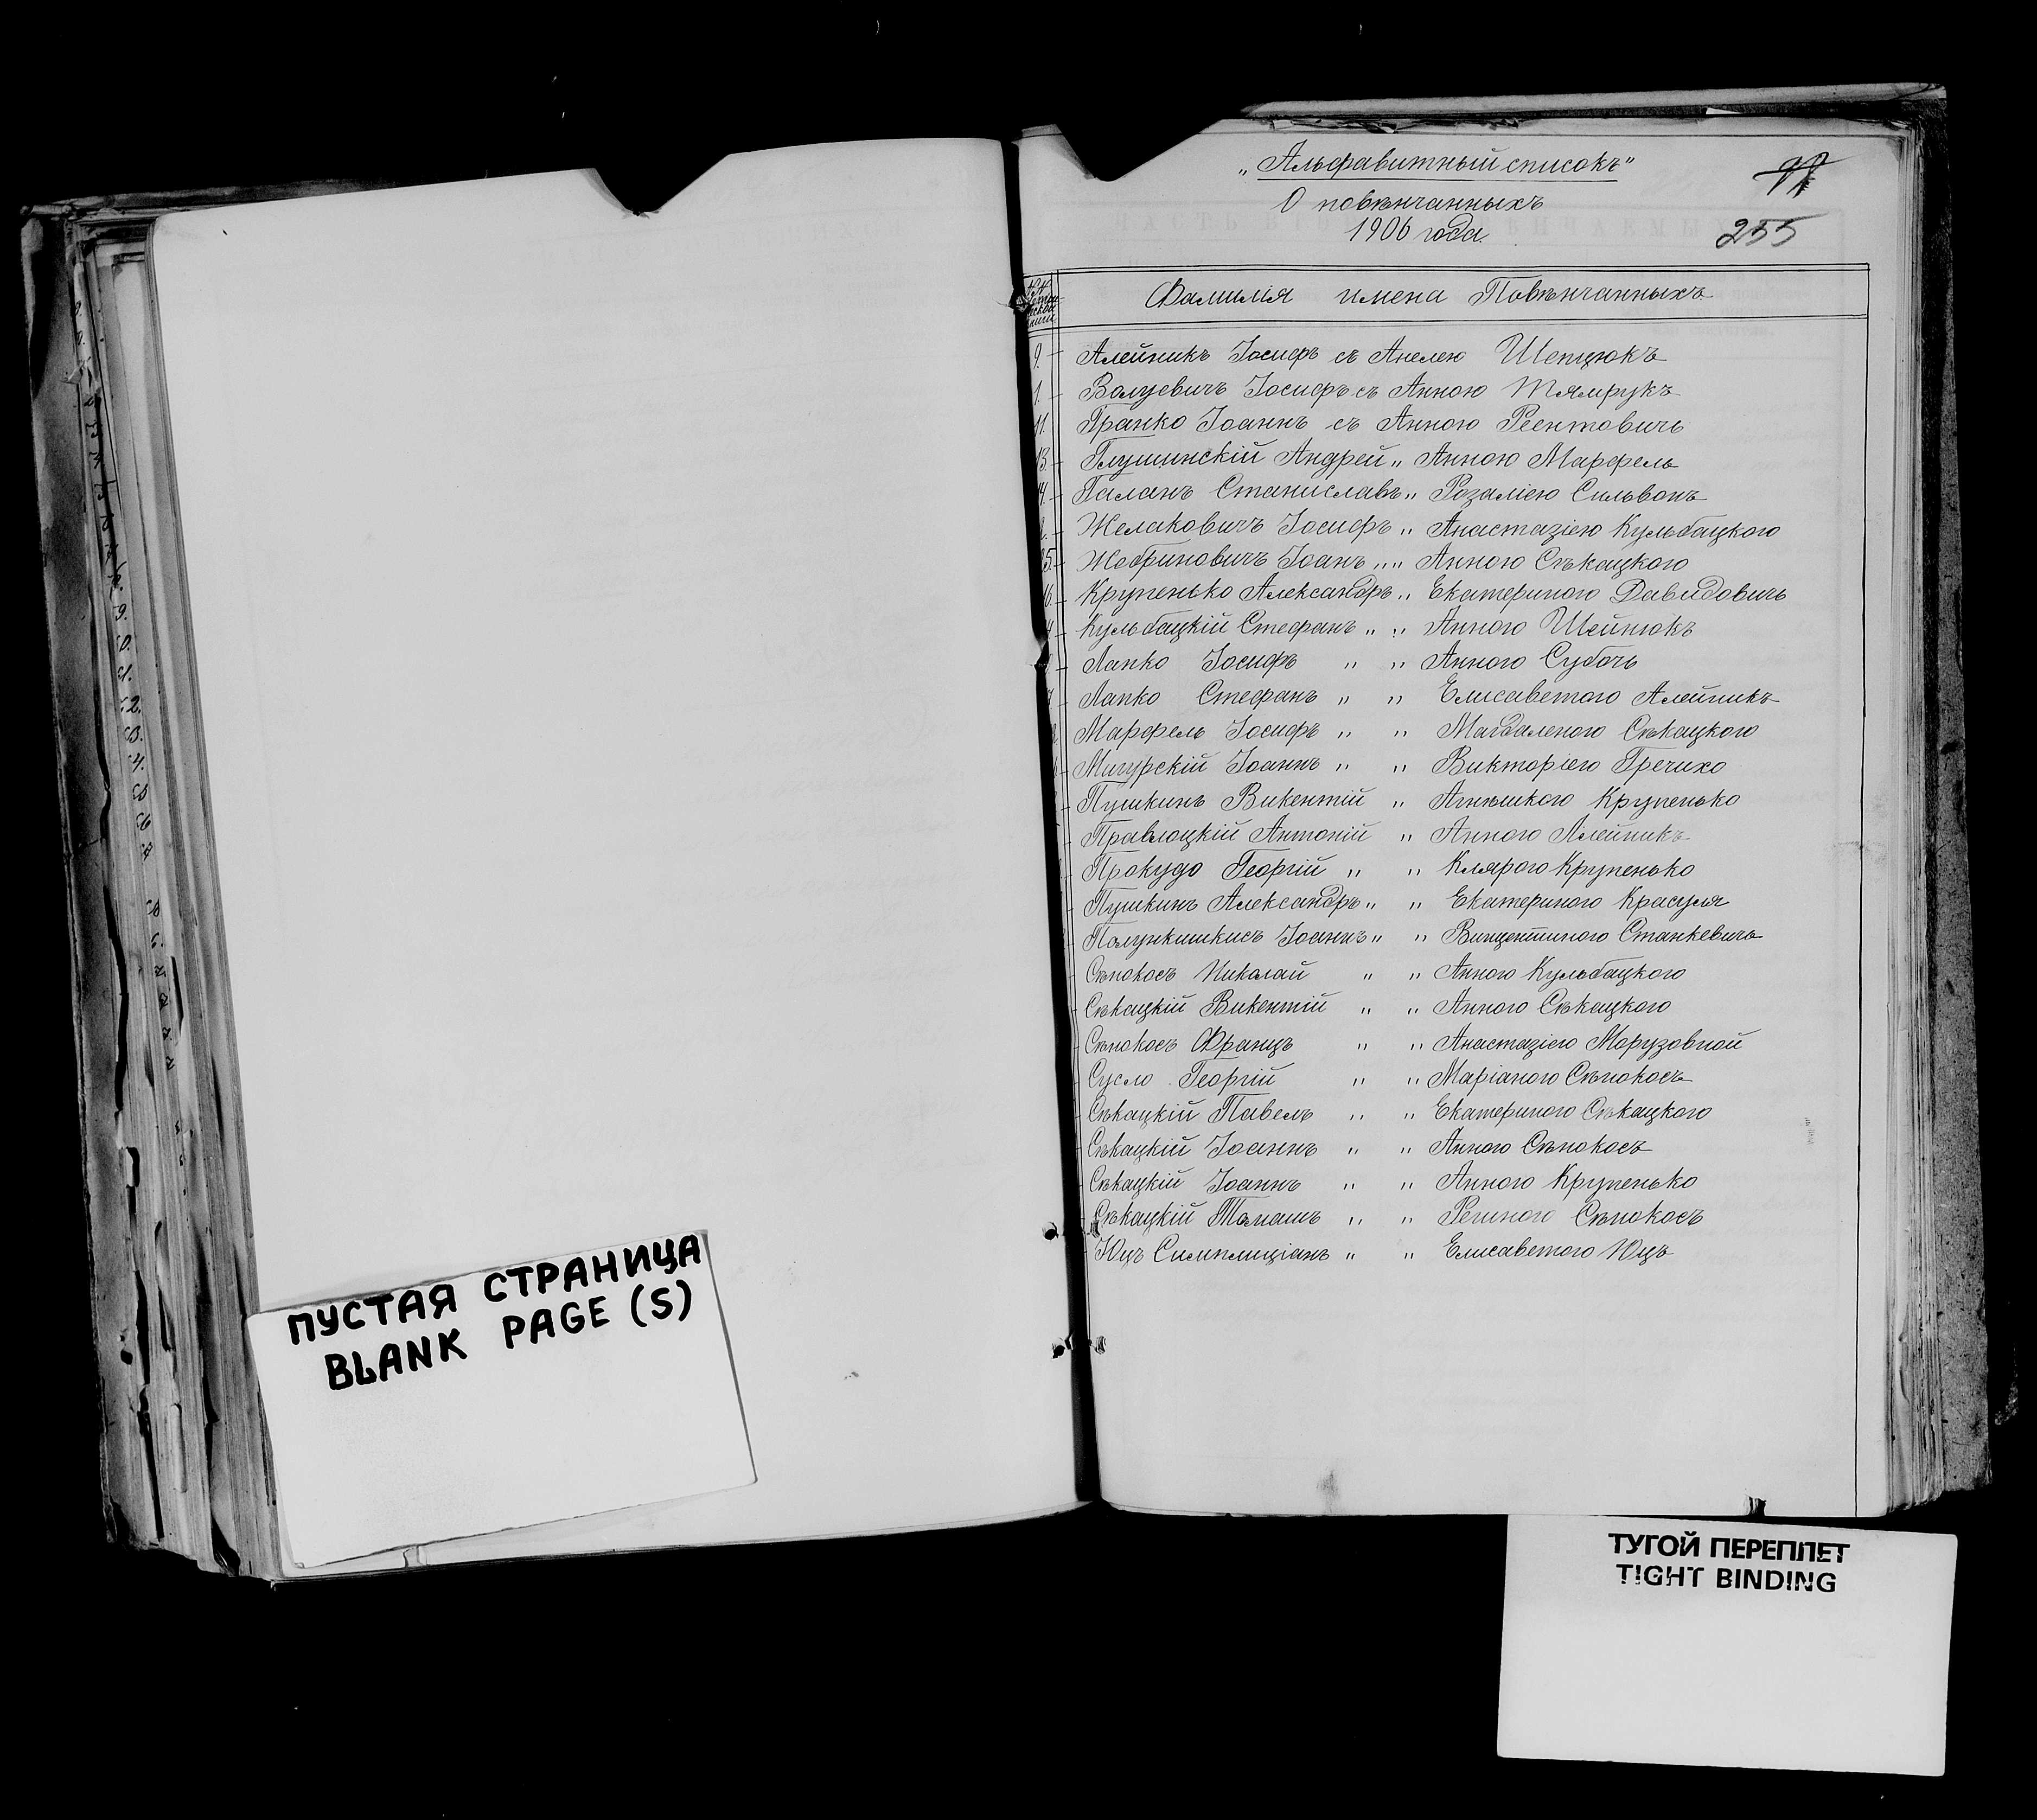 ПУСТАЯ СТРАНИЦА
BLANK PAGE (S)
„Альфавитный списокъ"
О повѣнчанныхъ
1906 года.
255
Фамилія имена Повѣнчанныхъ
9. Алейникъ Іосифъ съ Анелею Шепцюкъ
1. Валуевичъ Іосифъ съ Анною Тямрукъ
11. Гранко Іоаннъ съ Анною Реентовичъ
13. Глушинскій Андрей „ Анною Марфель
Галанъ Станиславъ „ Розаліею Сильвонъ
Желаковичъ Іосифъ „ Анастазіею Кульбацкою
5. Жебриновичъ Іоанъ „ „ Анною Сѣкацкою
6. Крупенько Александръ „ Екатериною Давидовичъ
Кульбацкій Стефанъ „ „ Анною Шейнюкъ
Лапко Іосифъ „ „ Анною Субочъ
Лапко Стефанъ „ „ Елисаветою Алейникъ
Марфель Іосифъ „ „ Магдаленою Сѣкацкою
Мигурскій Іоаннъ „ „ Викторіею Гречихо
Пушкинъ Викентій „ Агнѣшкою Крупенько
Правлоцкій Антоній „ Анною Алейникъ
Прокудо Георгій „ „ Клярою Крупенько
Пушкинъ Александръ „ „ Екатериною Красуля
Полункишкисъ Іоаннъ „ „ Винцентиною Станкевичъ
Сѣнокосъ Николай „ „ Анною Кульбацкою
Сѣкацкій Викентій „ „ Анною Сѣкацкою
Сѣнокосъ Францъ „ „ Анастазіею Морузовной
Сусло Георгій „ „ Маріаною Сѣнокосъ
Сѣкацкій Павелъ „ „ Екатериною Сѣкацкою
Сѣкацкій Іоаннъ „ „ Анною Сѣнокосъ
Сѣкацкій Іоаннъ „ „ Анною Крупенько
Сѣкацкій Томашъ „ „ Региною Сѣнокосъ
Юцъ Симплиціанъ „ „ Елисаветою Юцъ
ТУГОЙ ПЕРЕПЛЕТ
TIGHT BINDING